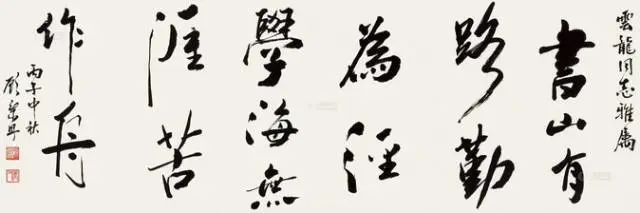 雲龍同志雅屬
書山有
路勤
為徑
學海無
涯苦
作舟
丙午中秋